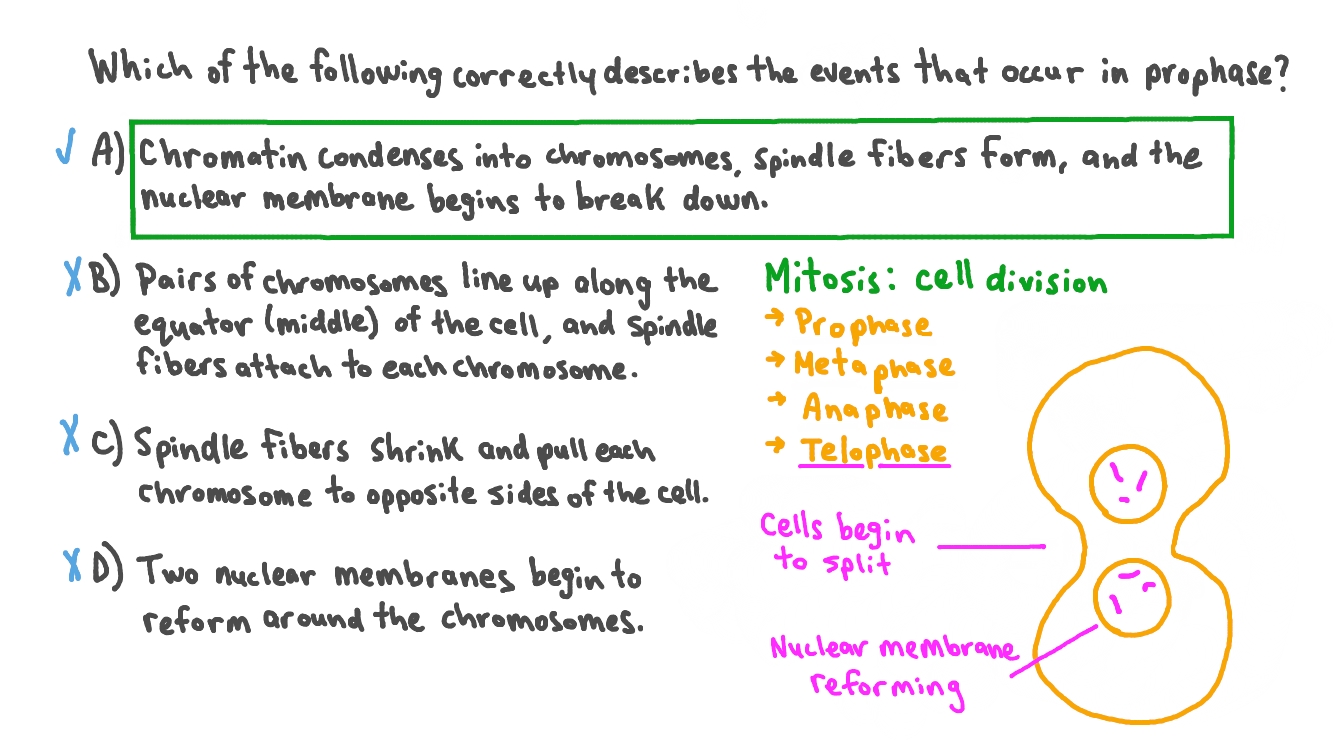 Which of the following correctly describes the events that occur in prophase?
✓ A) Chromatin condenses into chromosomes, spindle fibers form, and the
nuclear membrane begins to break down.
X B) Pairs of chromosomes line up along the
equator (middle) of the cell, and spindle
fibers attach to each chromosome.
X C) Spindle fibers shrink and pull each
chromosome to opposite sides of the cell.
X D) Two nuclear membranes begin to
reform around the chromosomes.
Mitosis: cell division
→ Prophase
→ Metaphase
→ Anaphase
→ Telophase
Cells begin
to split
Nuclear membrane
reforming